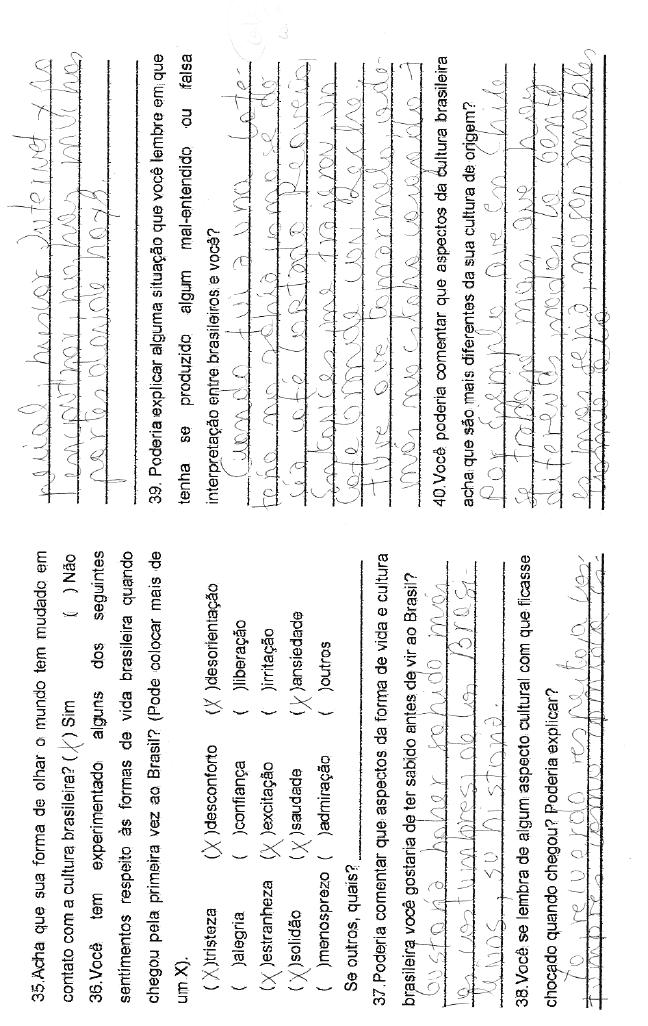 35.Acha que sua forma de olhar o mundo tem mudado em
contato com a cultura brasileira? (X) Sim ( ) Não
36.Você tem experimentado alguns dos seguintes
sentimentos respeito às formas de vida brasileira quando
chegou pela primeira vez ao Brasil? (Pode colocar mais de
um X).
(X)tristeza (X)desconforto (X)desorientação
( )alegria ( )confiança ( )liberação
(X)estranheza (X)excitação ( )irritação
(X)solidão (X)saudade (X)ansiedade
( )menosprezo ( )admiração ( )outros
Se outros, quais?
37.Poderia comentar que aspectos da forma de vida e cultura
brasileira você gostaria de ter sabido antes de vir ao Brasil?
Gustaria haber sabido más
las costumbres de los Brasi-
leiros, su historia.
38.Você se lembra de algum aspecto cultural com que ficasse
chocado quando chegou? Poderia explicar?
recuerdo respeito a cos-
buscar Internet y no
encontrar, no hay muchas
partes donde haya.
39. Poderia explicar alguma situação que você lembre em que
tenha se produzido algum mal-entendido ou falsa
interpretação entre brasileiros e você?
Cuando fui a una cafe-
teria no sabia como se de
cia café cortado Pequeño
Entonces me trajeron un
Café Grande con Leche
Tuve que tomarmelo ade-
más no estaba
40.Você poderia comentar que aspectos da cultura brasileira
acha que são mais diferentes da sua cultura de origem?
Por Exemplo que en Chile
se trabaja más que hay
diferentes modos la gente
es mas seria, no son amables